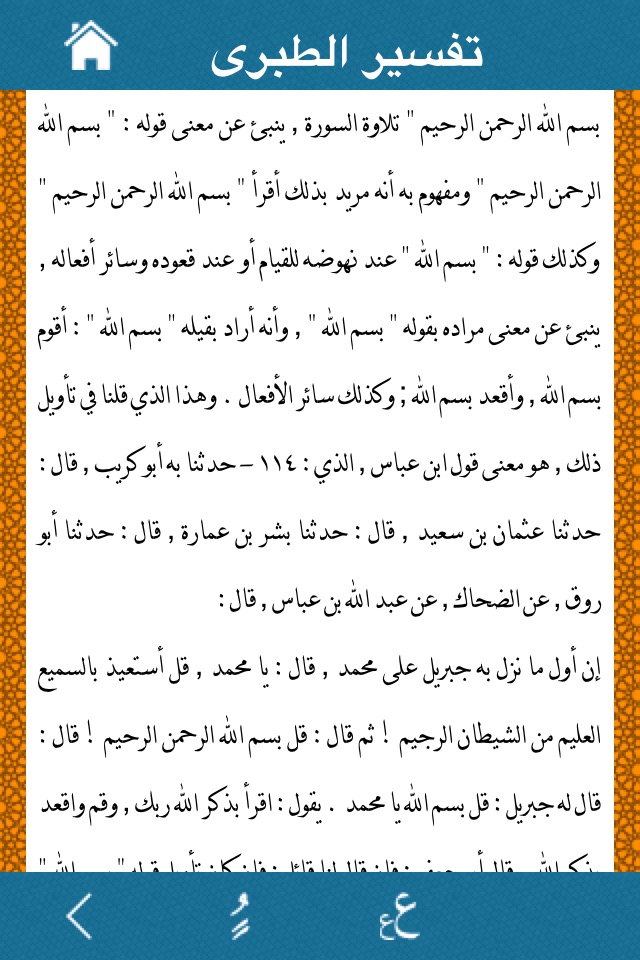 تفسير الطبرى
بسم الله الرحمن الرحيم " تلاوة السورة , ينبئ عن معنى قوله : " بسم الله
الرحمن الرحيم " ومفهوم به أنه مريد بذلك أقرأ " بسم الله الرحمن الرحيم "
وكذلك قوله : " بسم الله " عند نهوضه للقيام أو عند قعوده وسائر أفعاله ,
ينبئ عن معنى مراده بقوله " بسم الله " , وأنه أراد بقيله " بسم الله " : أقوم
بسم الله , وأقعد بسم الله ; وكذلك سائر الأفعال . وهذا الذي قلنا في تأويل
ذلك , هو معنى قول ابن عباس , الذي : ١١٤ – حدثنا به أبو كريب , قال :
حدثنا عثمان بن سعيد , قال : حدثنا بشر بن عمارة , قال : حدثنا أبو
روق , عن الضحاك , عن عبد الله بن عباس , قال :
إن أول ما نزل به جبريل على محمد , قال : يا محمد , قل أستعيذ بالسميع
العليم من الشيطان الرجيم ! ثم قال : قل بسم الله الرحمن الرحيم ! قال :
قال له جبريل : قل بسم الله يا محمد . يقول : اقرأ بذكر الله ربك , وقم واقعد
ع ع